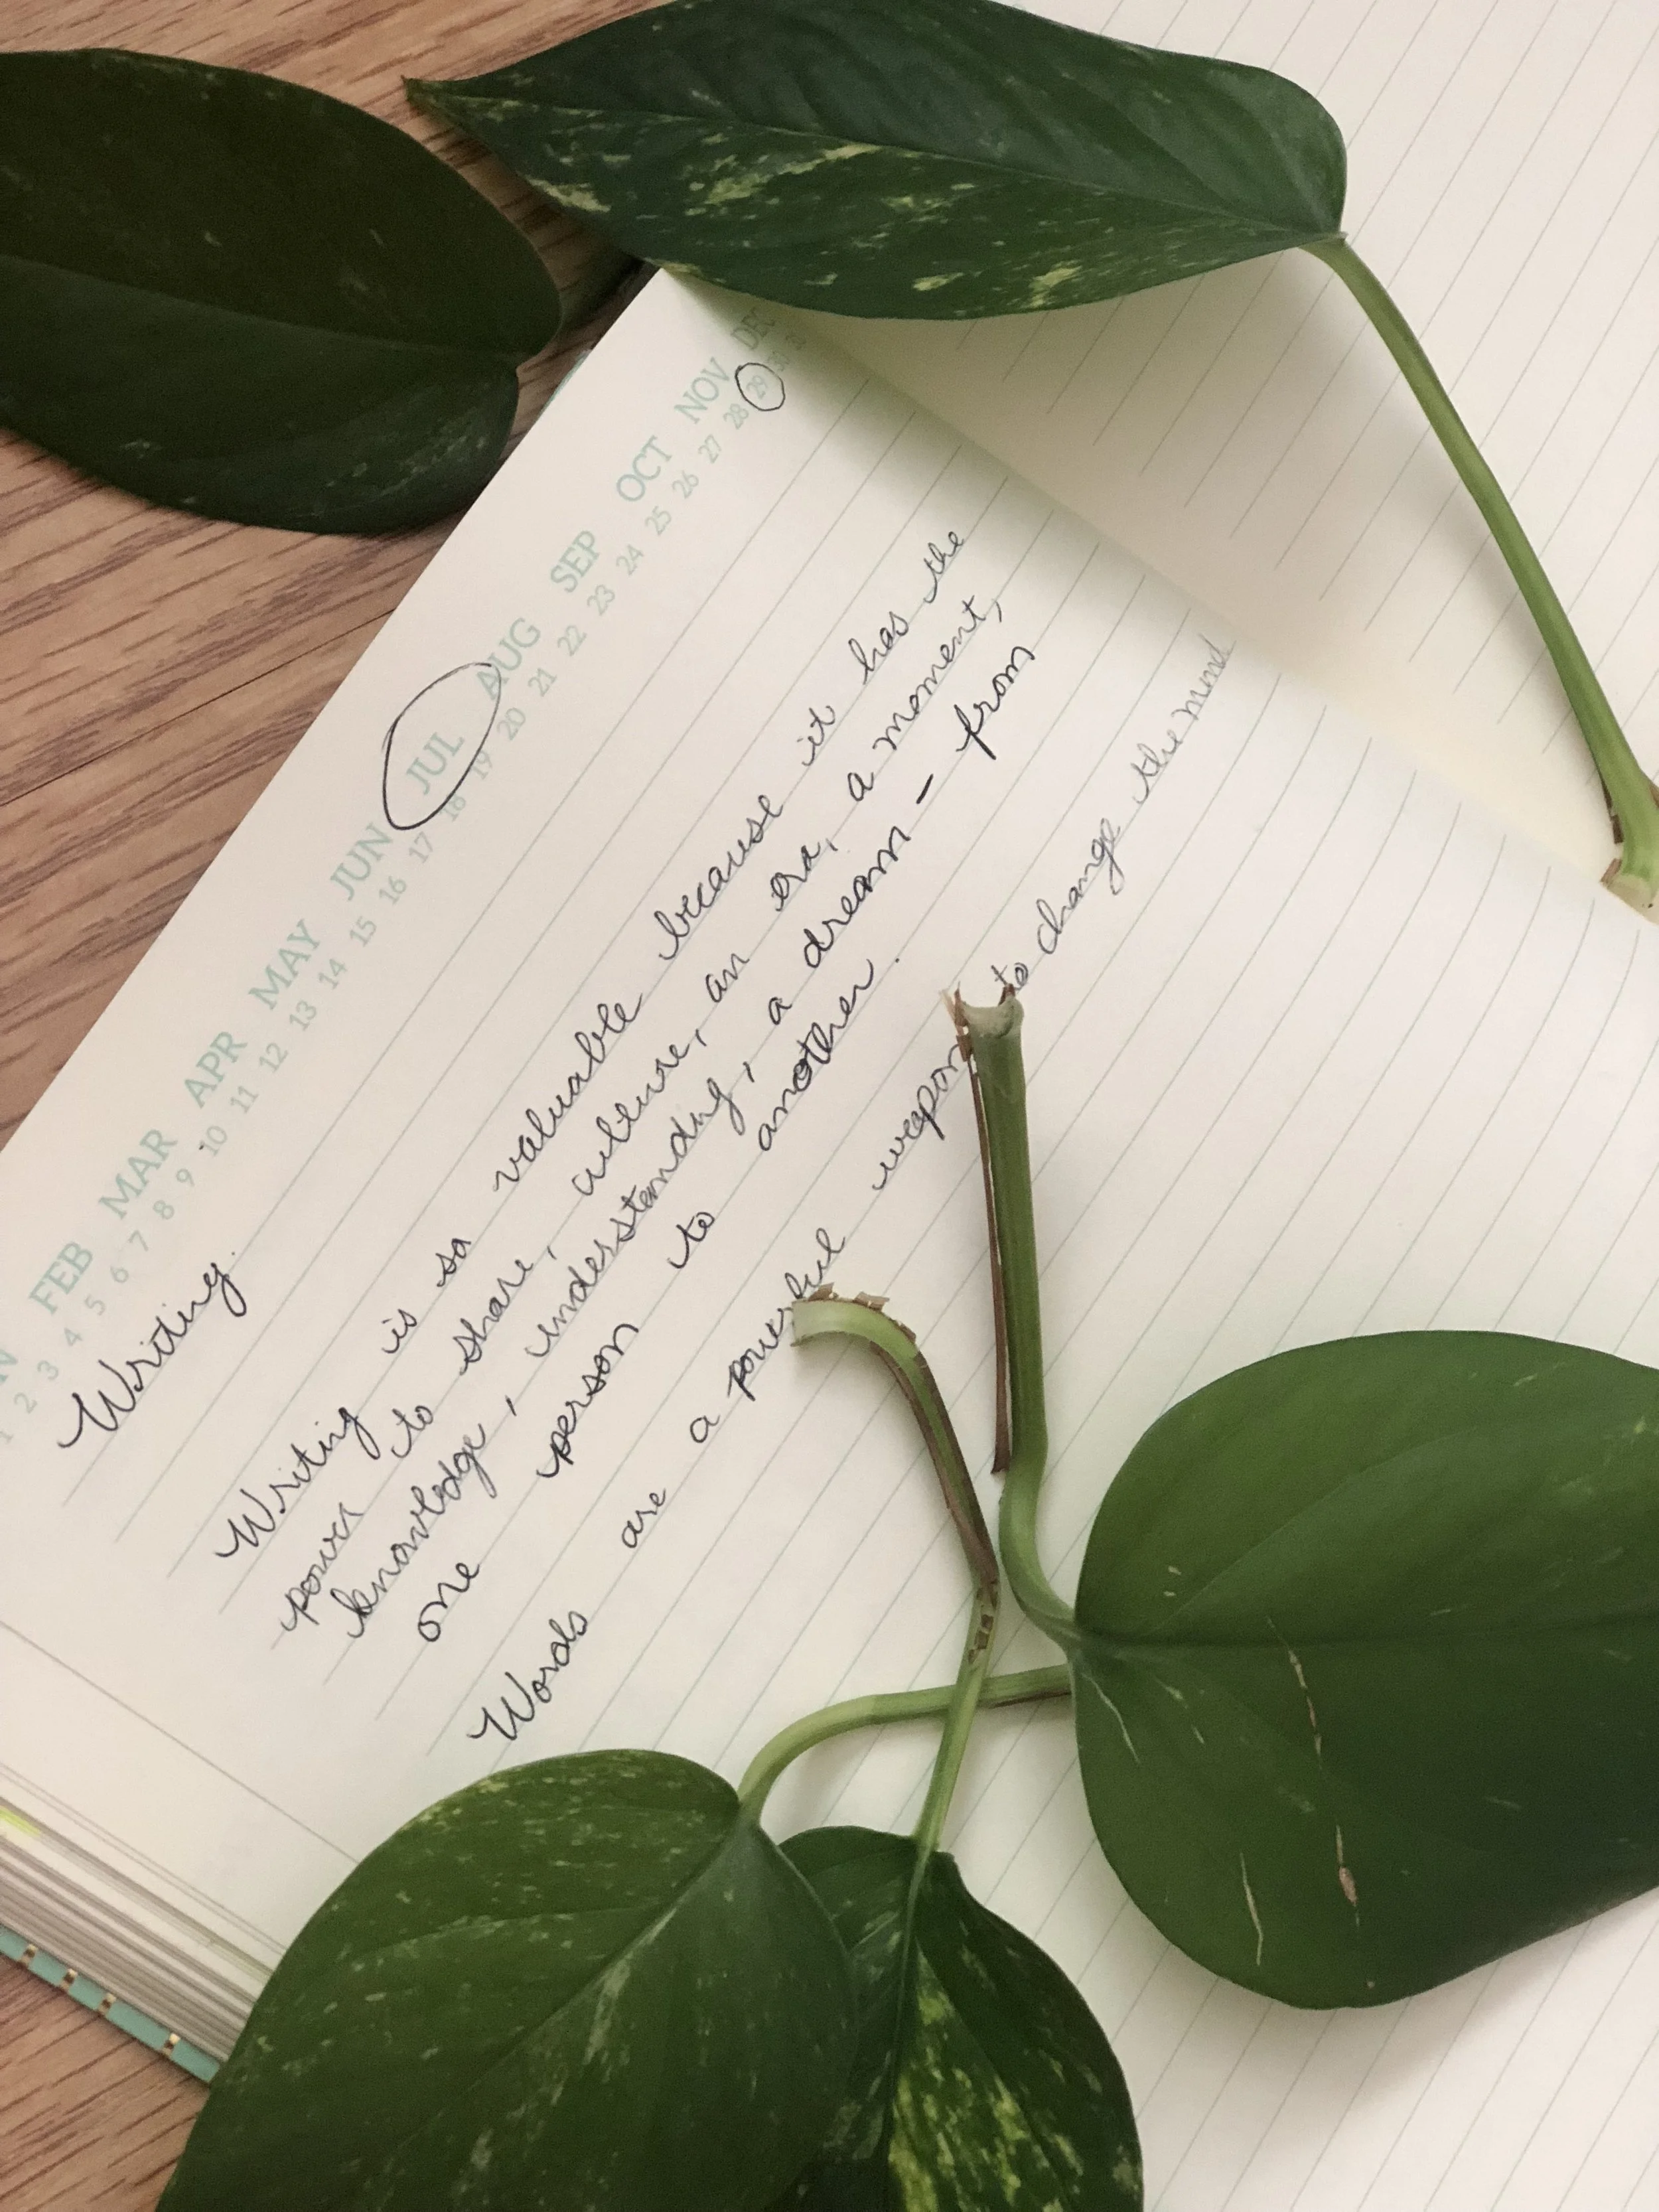 FEB MAR APR MAY JUN JUL AUG SEP OCT NOV DEC
1 2 3 4 5 6 7 8 9 10 11 12 13 14 15 16 17 18 19 20 21 22 23 24 25 26 27 28 29 30 31
Writing.
Writing is so valuable because it has the
power to share, culture, an era, a moment,
knowledge, understanding, a dream – from
one person to another.
Words are a powerful weapon to change the mind